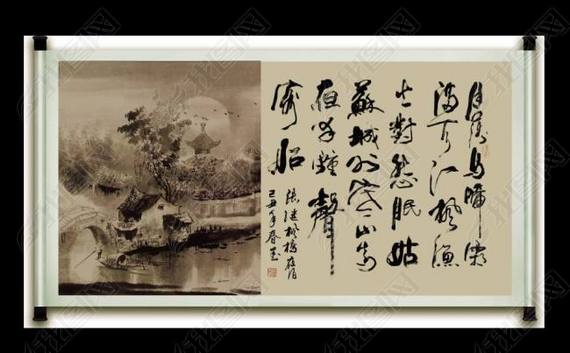 月落烏啼霜
滿天江楓漁
火對愁眠姑
蘇城外寒山寺
夜半鐘聲
客船
張继楓橋夜泊
己丑年春